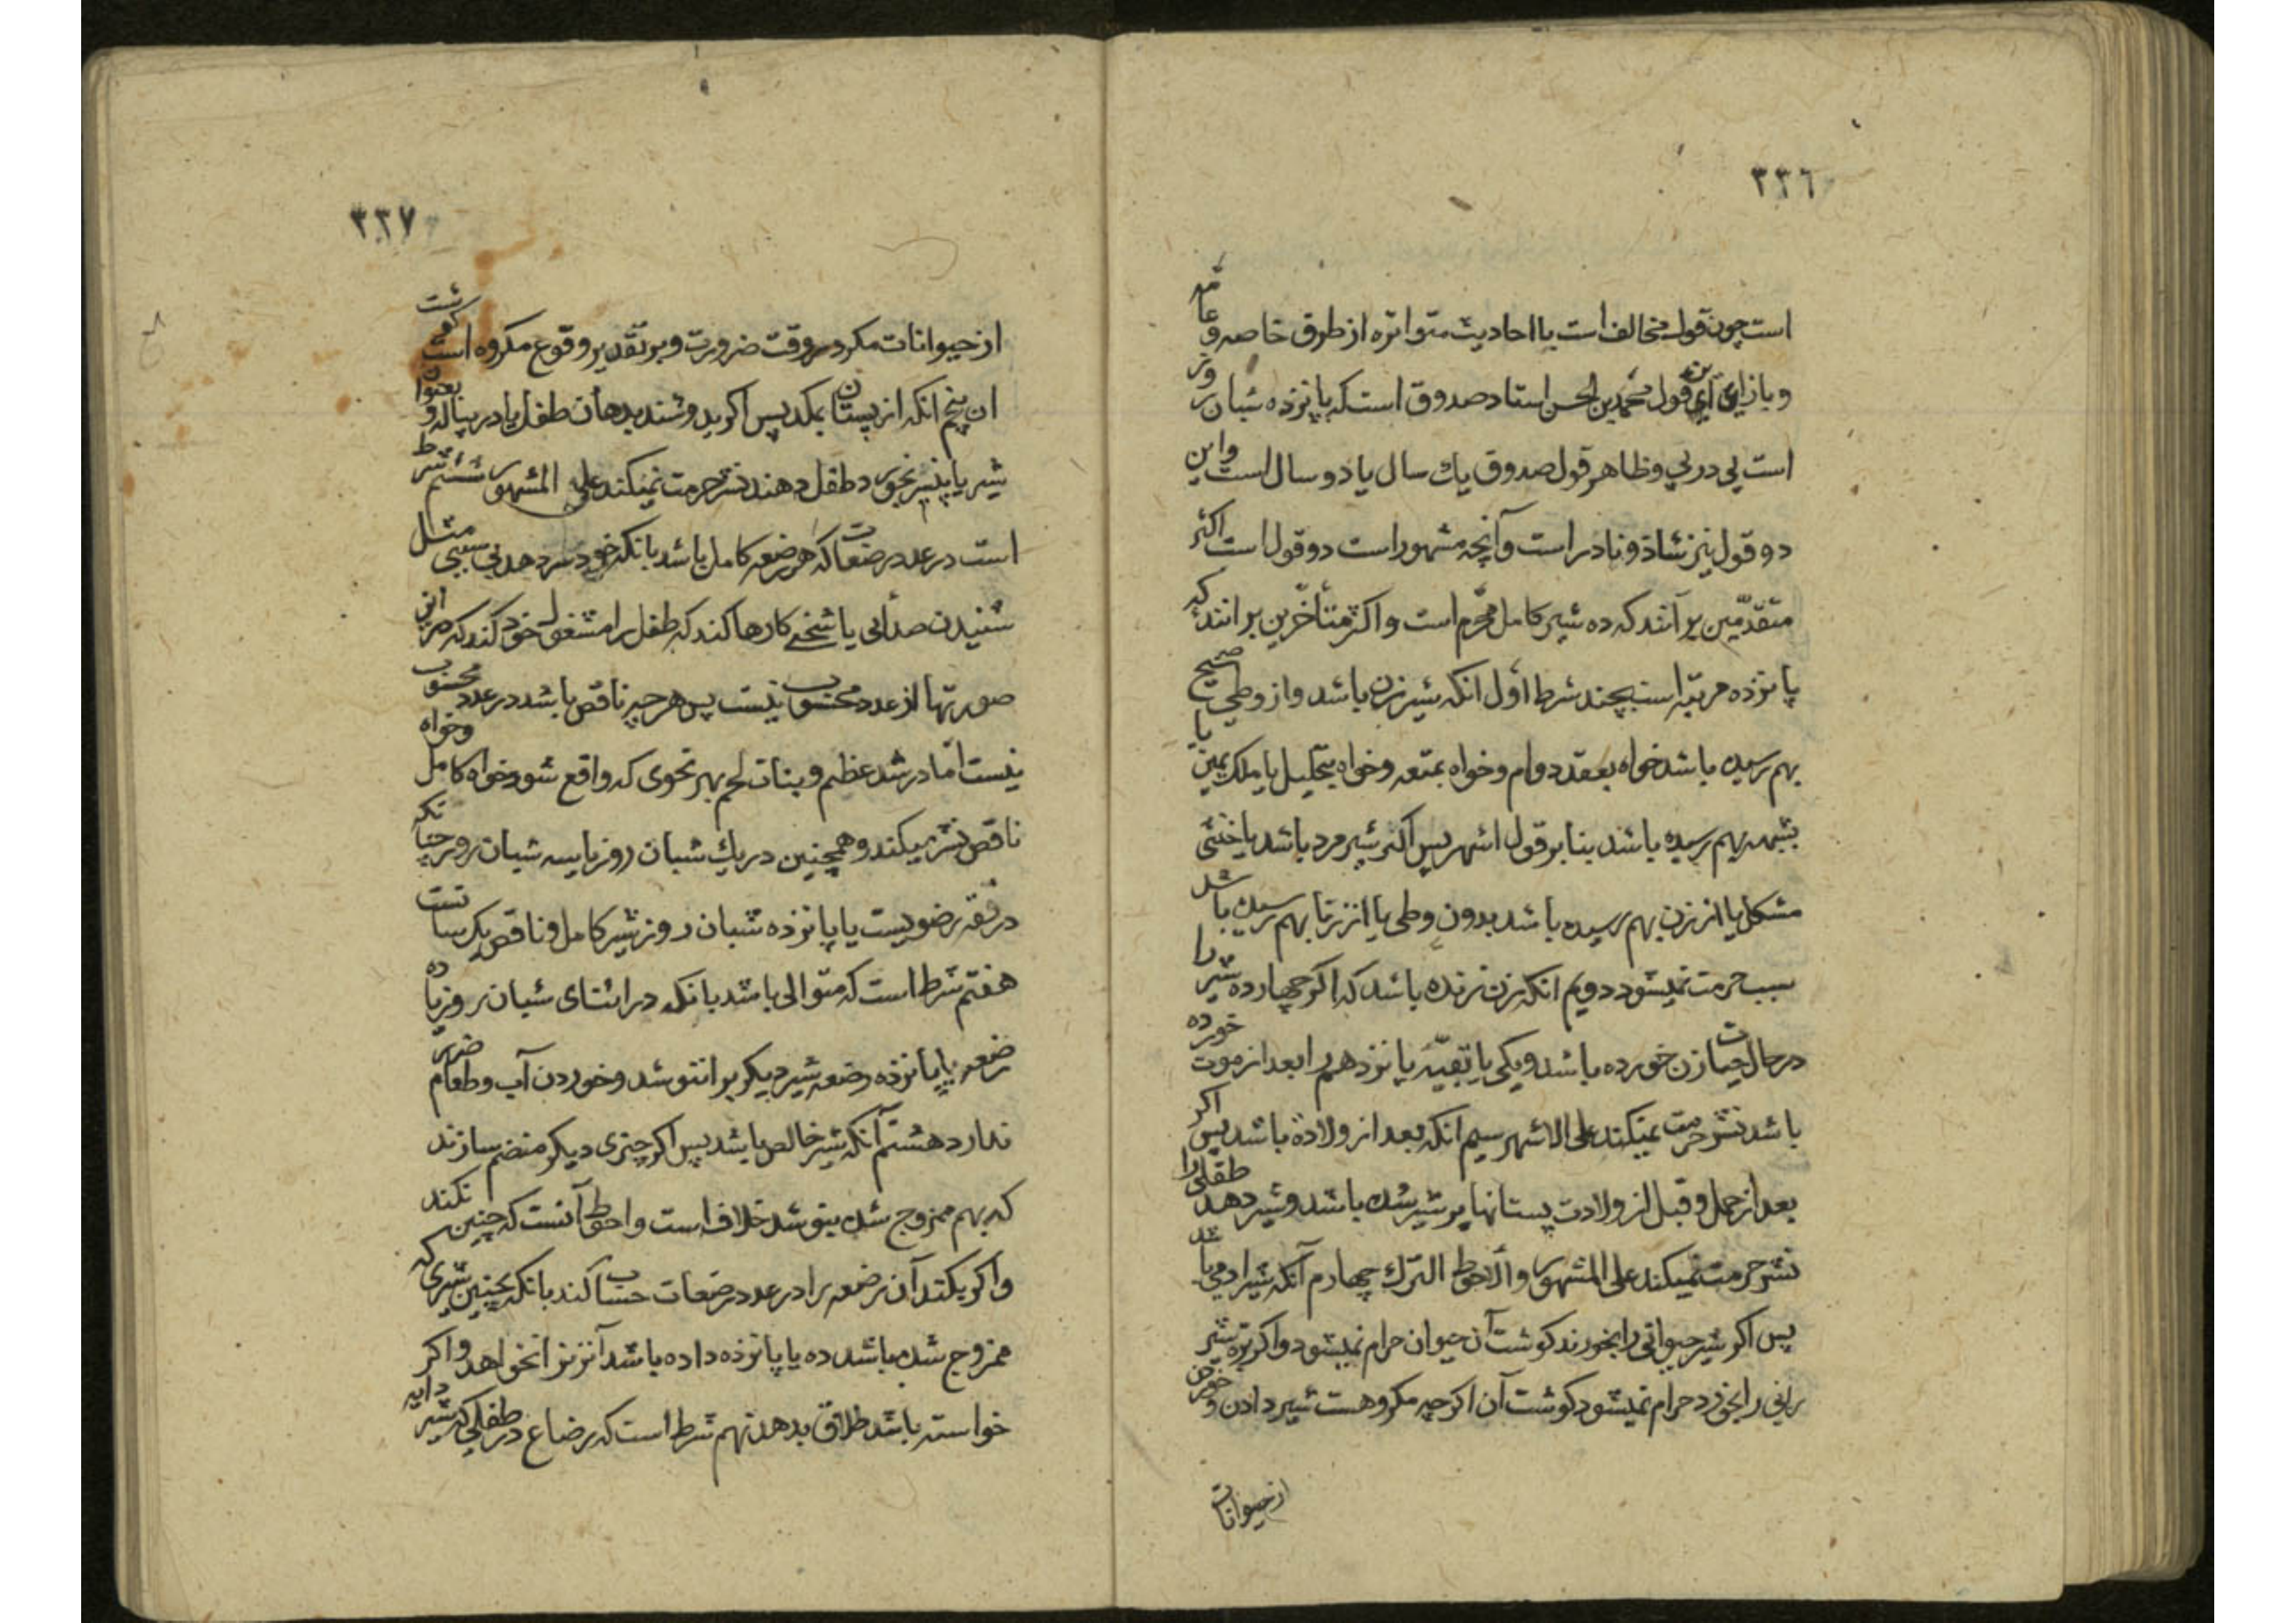 ٣٣٦
است چون قول مخالف است با احادیث متواتره از طرق خاصه و عامه
و بازای این قول محمد بن الحسن استاد صدوق است که پانزده شبان روز
است پی در پی و ظاهر قول صدوق یك سال یا دو سال است و این
دو قول نیز شاذ و نادر است و آنچه مشهور است دو قول است اکثر
متقدّمین بر آنند که ده شیر کامل محرّم است و اکثر متأخّرین بر آنند که
پانزده مرتبه است بچند شرط اول انکه شیر زن باشد و از وطی صحیح
بهم رسیده باشد خواه بعقد دوام و خواه بمتعه و خواه بتحلیل یا ملك یمین یا
بشبهه بهم رسیده باشد بنا بر قول اشهر پس اکر شیر مرد باشد یا خنثی
مشکل یا از زن بهم رسیده باشد بدون وطی یا از زنا بهم رسیده باشد
سبب حرمت نمیشود دویم انکه زن زنده باشد که اکر چهارده شیر را
در حال حیات زن خورده باشد و یکی یا بقیّه پانزدهم را بعد از موت خورده
باشد نشر حرمت نمیکند علی الاشهر سیم انکه بعد از ولادة باشد پس اکر
بعد از حمل و قبل از ولادت پستانها پر شیر شده باشد و شیر دهد طفلی را
نشر حرمت نمیکند علی المشهور و الاحوط الترك چهارم آنکه شیر ادمی باشد
پس اکر شیر حیوانی را بخورند کوشت آن حیوان حرام نمیشود و اکر بزه شیر
زنی را بخورد حرام نمیشود کوشت آن اکرچه مکروهست شیر دادن و خوردن
از حیوانات
٣٣٧
از حیوانات مکر در وقت ضرورت و بر تقدیر وقوع مکروه است کوشت
ان پنجم انکه از پستان بمکد پس اکر بدوشند بدهان طفل یا در پیاله و بعنوان
شیر یا پنیر بخورد طفل دهند نشر حرمت نمیکند علی المشهور ششم شرط
است در عدد رضعات که هر رضعه کامل باشد بانکه خود سر دهد بی سببی مثل
شنیدن صدائی یا شخصی کارها کند که طفل را مشغول خود کند که در این
صورتها از عدد محسوب نیست پس هر چه ناقص باشد در عدد محسوب
نیست امّا در شد عظم و بنات لحم بهر نحوی که واقع شود خواه کامل و خواه
ناقص نشر میکند و همچنین در یك شبان روز یا سه شبان روز چنانکه
در فقه رضویست یا پانزده شبان روز شیر کامل و ناقص یکسانست
هفتم شرط است که متوالی باشد بانکه در اثنای شبان روز یا ده
رضعه یا پانزده رضعه شیر دیکر برا ننوشد و خوردن آب و طعام ضرر
ندارد هشتم آنکه شیر خالص باشد پس اکر چیزی دیکر منضم سازند
که بهم ممزوج شده بنوشد خلاف است و احوط آنست که چنین نکند
و اکر بکند آن رضعه را در عدد رضعات حساب کند بانکه بچنین شیری که
ممزوج شده باشد ده یا پانزده داده باشد آنزنرا نخواهد و اکر
خواسته باشد طلاق بدهد نهم شرط است که رضاع در طفلی که شیر دایه